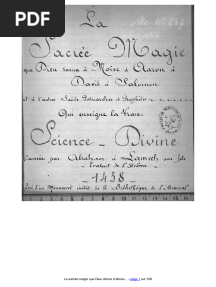 PDF
La
Sacrée Magie
que Dieu donna à Moïse à Aaron à
David à Salomon
et à d'autres Saints Patriarches & Prophètes
Qui enseigne la Vraie
Science - Divine
Laissée par Abraham à Lamech son fils
- Traduit de l'hébreu -
- 1458 -
d'un Manuscrit inédit de la Bibliothèque de l'Arsenal
La sacrée magie que Dieu donna à Moïse... - page 1 sur 109